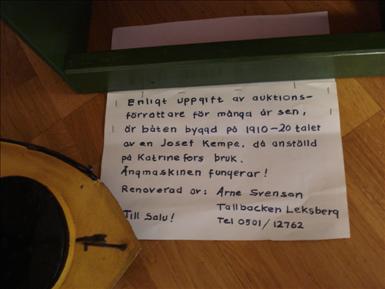 Enligt uppgift av auktions-
förrättare för många år sen,
är båten byggd på 1910-20 talet
av en Josef Kempe, då anställd
på Katrinefors bruk.
Ångmaskinen fungerar!
Renoverad av: Arne Svenson
Tallbacken Leksberg
Till Salu! Tel 0501/12762